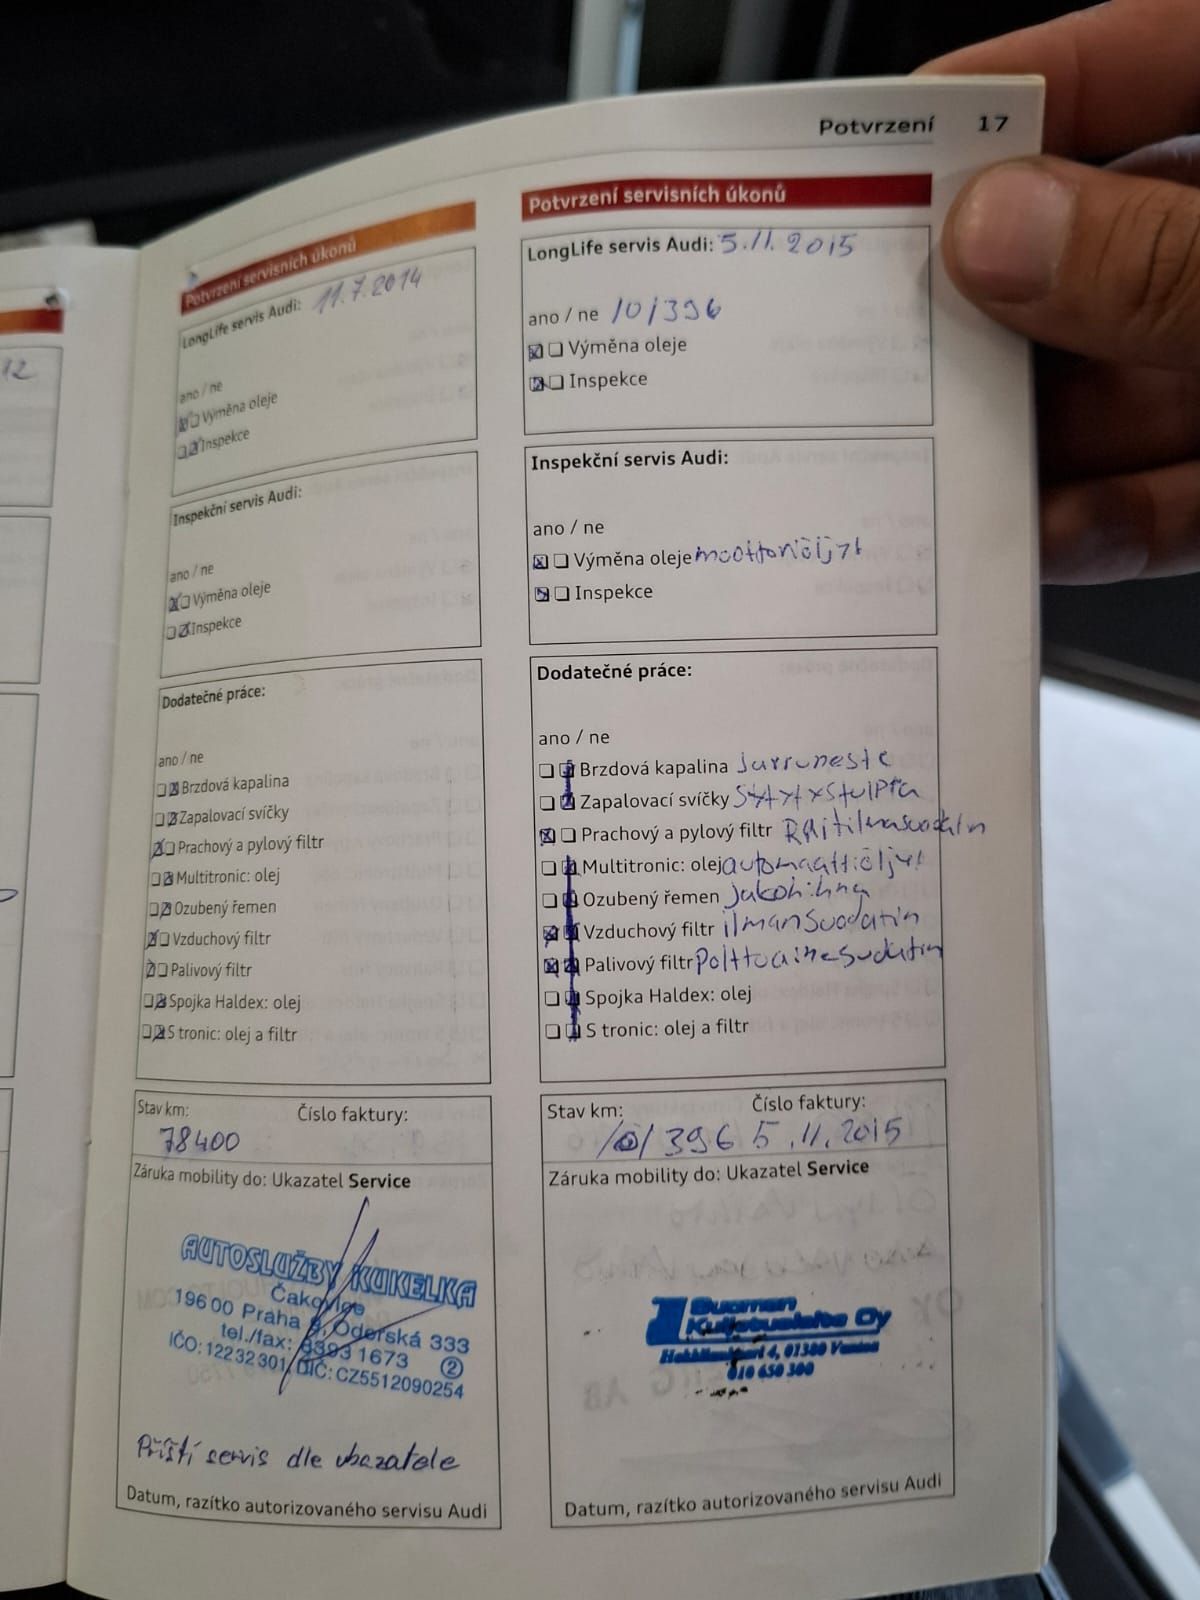 Potvrzení 17
12
Potvrzení servisních úkonů
LongLife servis Audi: 11.7.2014
ano / ne
Výměna oleje
Inspekce
Inspekční servis Audi:
ano / ne
Výměna oleje
Inspekce
Dodatečné práce:
ano / ne
Brzdová kapalina
Zapalovací svíčky
Prachový a pylový filtr
Multitronic: olej
Ozubený řemen
Vzduchový filtr
Palivový filtr
Spojka Haldex: olej
S tronic: olej a filtr
Stav km: Číslo faktury:
78400
Záruka mobility do: Ukazatel Service
AUTOSLUŽBY KUKELKA
Čakovice
196 00 Praha 9, Oderská 333
tel./fax: 8393 1673 2
IČO: 12232301, DIČ: CZ5512090254
Příští servis dle ukazatele
Datum, razítko autorizovaného servisu Audi
Potvrzení servisních úkonů
LongLife servis Audi: 5.11.2015
ano / ne 101396
Výměna oleje
Inspekce
Inspekční servis Audi:
ano / ne
Výměna oleje moottoriöljyt
Inspekce
Dodatečné práce:
ano / ne
Brzdová kapalina jarruneste
Zapalovací svíčky
Prachový a pylový filtr Raitilmasuodatin
Multitronic: olej automaattiöljyt
Ozubený řemen jakohihna
Vzduchový filtr ilmansuodatin
Palivový filtr Polttoainesudatin
Spojka Haldex: olej
S tronic: olej a filtr
Stav km: Číslo faktury:
101396 5.11.2015
Záruka mobility do: Ukazatel Service
Suomen
Kuljetuslaite Oy
4, 01380 Vantaa
010 650 300
Datum, razítko autorizovaného servisu Audi